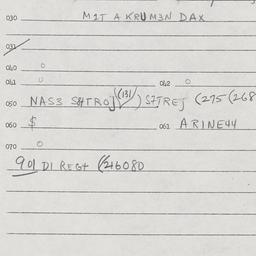 030 M2T A KRUM3N DAX
031
040 0
041 0 042 0
050 NAS3 SHTROJ (131/) SZTREJ (275 (268
060 $ 061 ARINE44
070 0
901 D1 REG+ (246080